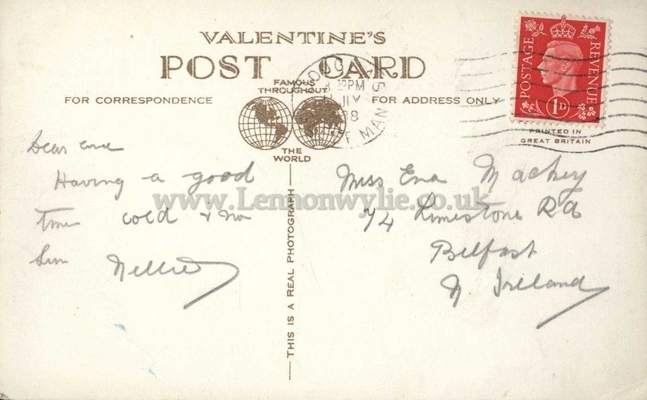 VALENTINE'S
POST CARD
FAMOUS
THROUGHOUT
THE
WORLD
FOR CORRESPONDENCE
FOR ADDRESS ONLY
POSTAGE
REVENUE
1D
PRINTED IN
GREAT BRITAIN
DOUG
PM
8
F MAN
Dear Ena
Having a good
time cold & no
Sun Nellie
THIS IS A REAL PHOTOGRAPH
Miss Ena Mackey
74 Limestone Rd
Belfast
N. Ireland
www.Lennonwylie.co.uk